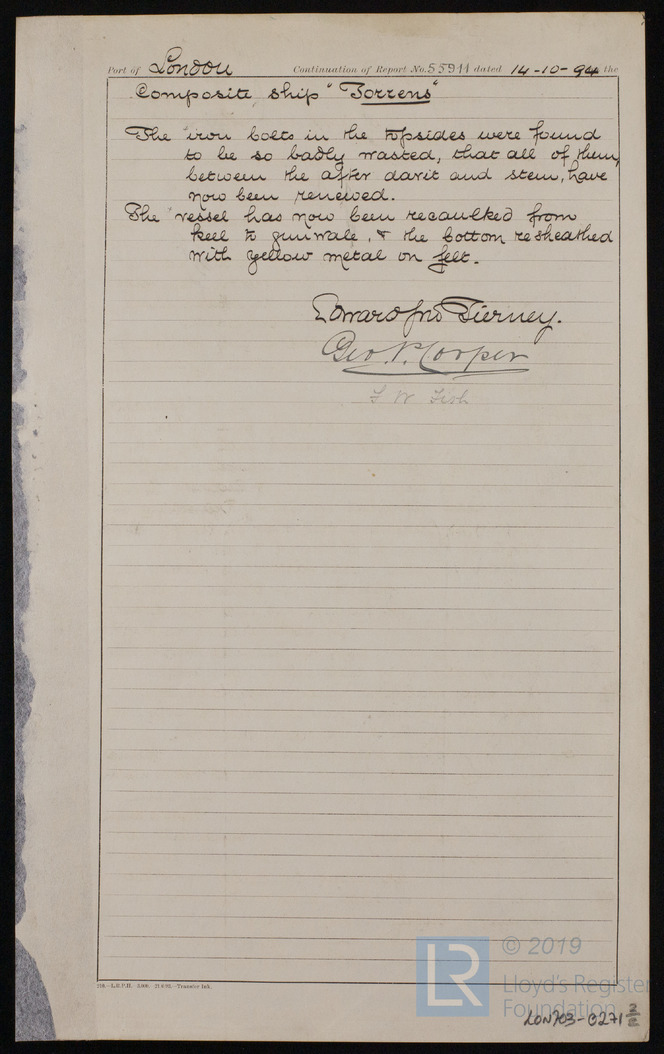 Port of London Continuation of Report No. 55911 dated 14-10-94 the
Composite ship "Torrens"
The iron bolts in the topsides were found
to be so badly wasted, that all of them,
between the after davit and stem, have
now been renewed.
The vessel has now been recaulked from
keel to gunwale, & the bottom resheathed
with yellow metal on felt.
Edward Jno Tierney.
Geo. P. Cooper
© 2019
LR
Lloyd's Register
Foundation
LON703-0271 2/2